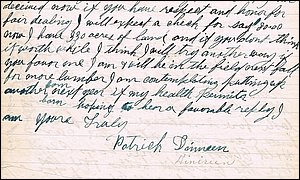 deceived now if you have respect and honor for
fair dealing I will expect a check for say $
now I have 320 acres of land and if you dont think
it worth while I think I will try another way if
you favor me I am & will be in the field next fall
for more lumber I am contemplating putting up
another next year if my health permits
barn
barn hoping to hear a favorable reply I
am yours Truly
Patrick Dinneen
Dinneen